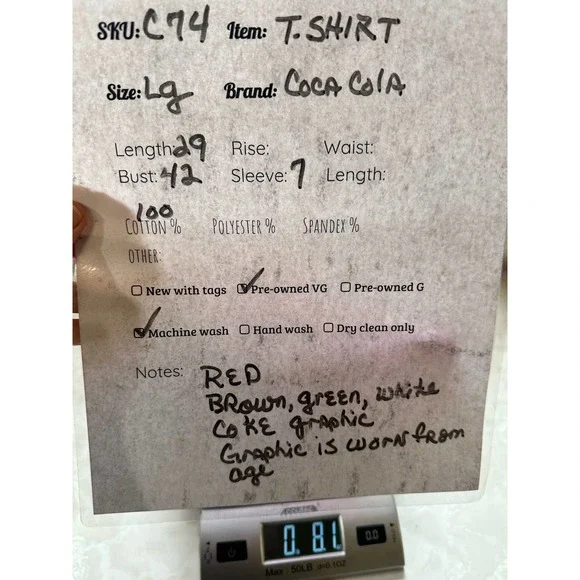 SKU: C74 Item: T.SHIRT
Size: Lg Brand: COCA COLA
Length: 29 Rise: Waist:
Bust: 42 Sleeve: 7 Length:
100
COTTON % POLYESTER % SPANDEX %
OTHER:
New with tags Pre-owned VG Pre-owned G
Machine wash Hand wash Dry clean only
Notes: RED
BROWN, GREEN, white
COKE graphic
Graphic is worn from
age
0.81. 0.0
Max: 50LB d=0.1OZ